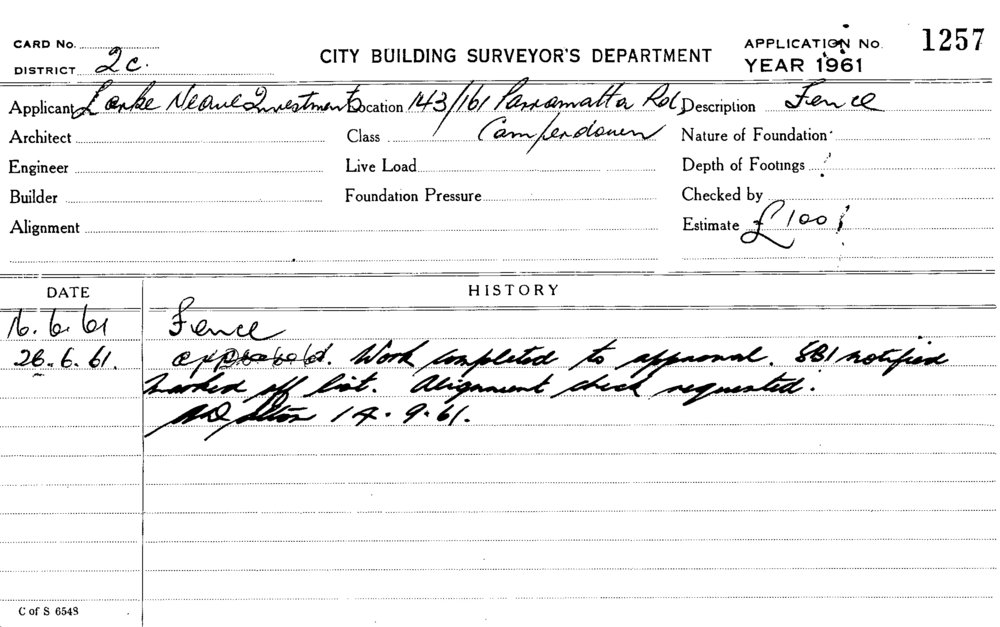 CARD No.
DISTRICT 2c.
CITY BUILDING SURVEYOR'S DEPARTMENT
APPLICATION No. 1257
YEAR 1961
Applicant Larke Neave Investments Location 143/161 Parramatta Rd, Description Fence
Architect Class Camperdown Nature of Foundation
Engineer Live Load Depth of Footings
Builder Foundation Pressure Checked by
Alignment Estimate £100
DATE HISTORY
16.6.61 Fence
26.6.61. Work completed to approval. SBI notified
Marked off list. Alignment check requested.
14.9.61.
C of S 6548